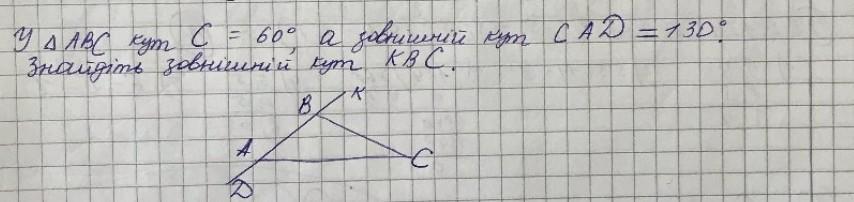 У △ABC кут C = 60°, а зовнішній кут CAD = 130°.
Знайдіть зовнішній кут KBC.
B K
A C
D